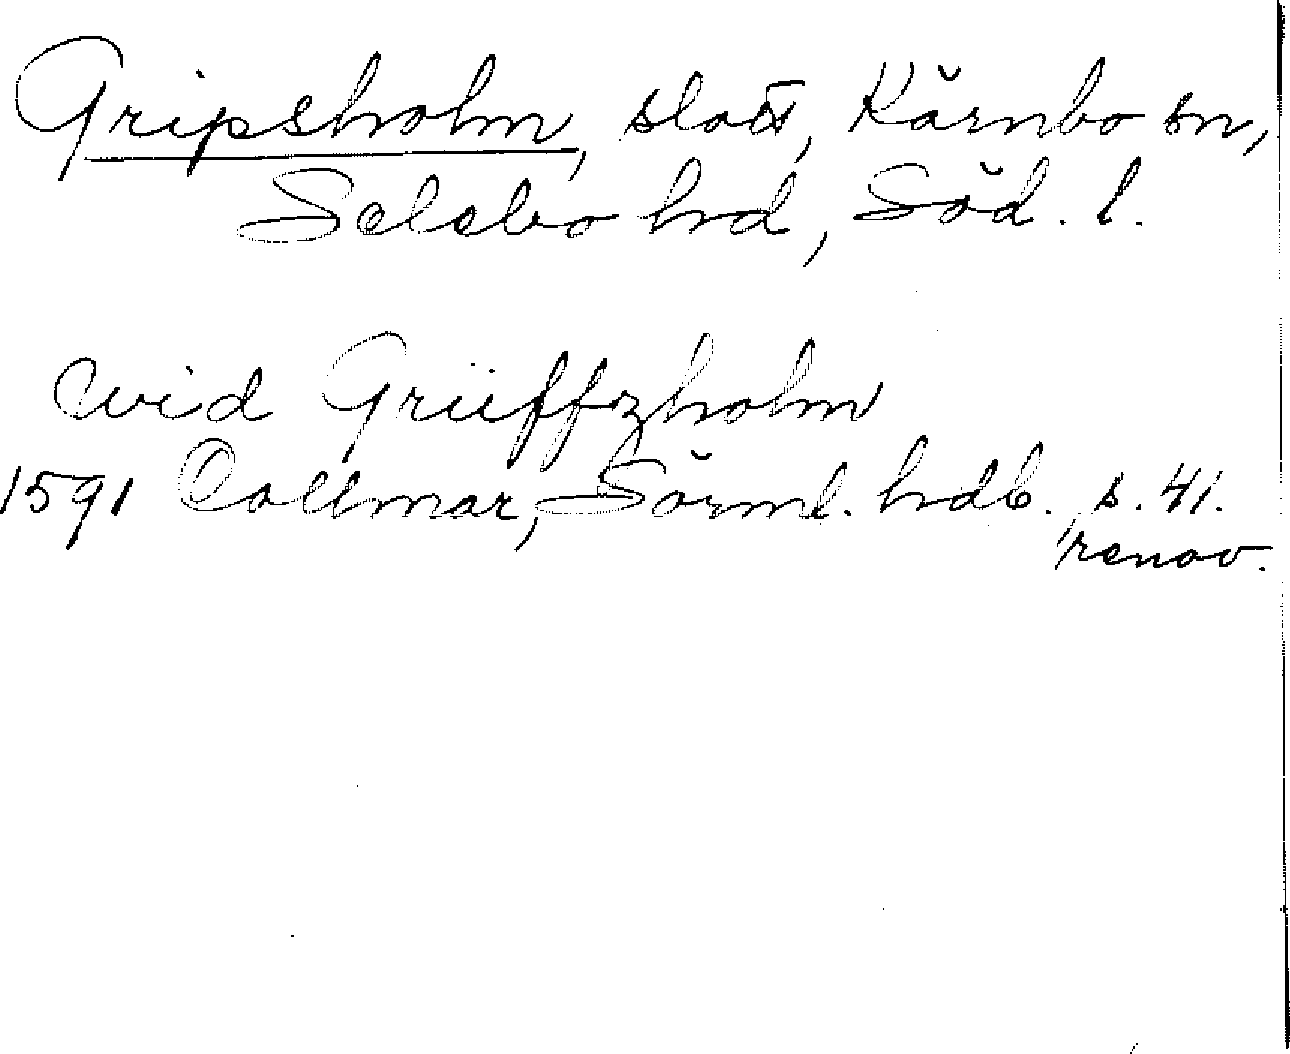 Gripsholm, slott, Kärnbo sn,
Selebo hd, Söd. l.
widh Grüffzholm
1591 Collmar, Sörml. hdb. s. 41.
renov.